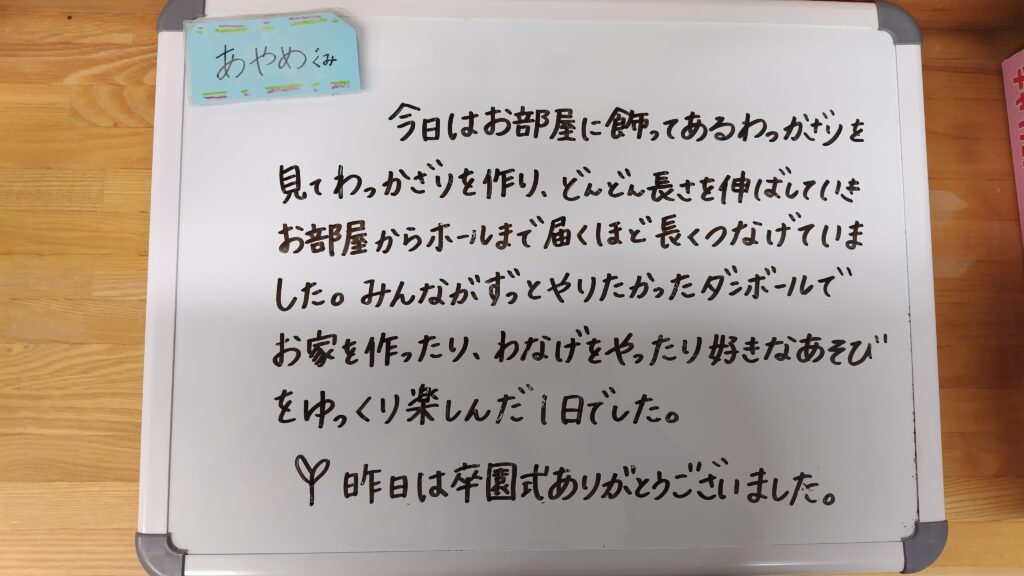 あやめぐみ
今日はお部屋に飾ってあるわっかざりを
見てわっかざりを作り、どんどん長さを伸ばしていき
お部屋からホールまで届くほど長くつなげていま
した。みんながずっとやりたかったダンボールで
お家を作ったり、わなげをやったり好きなあそび
をゆっくり楽しんだ1日でした。
昨日は卒園式ありがとうございました。